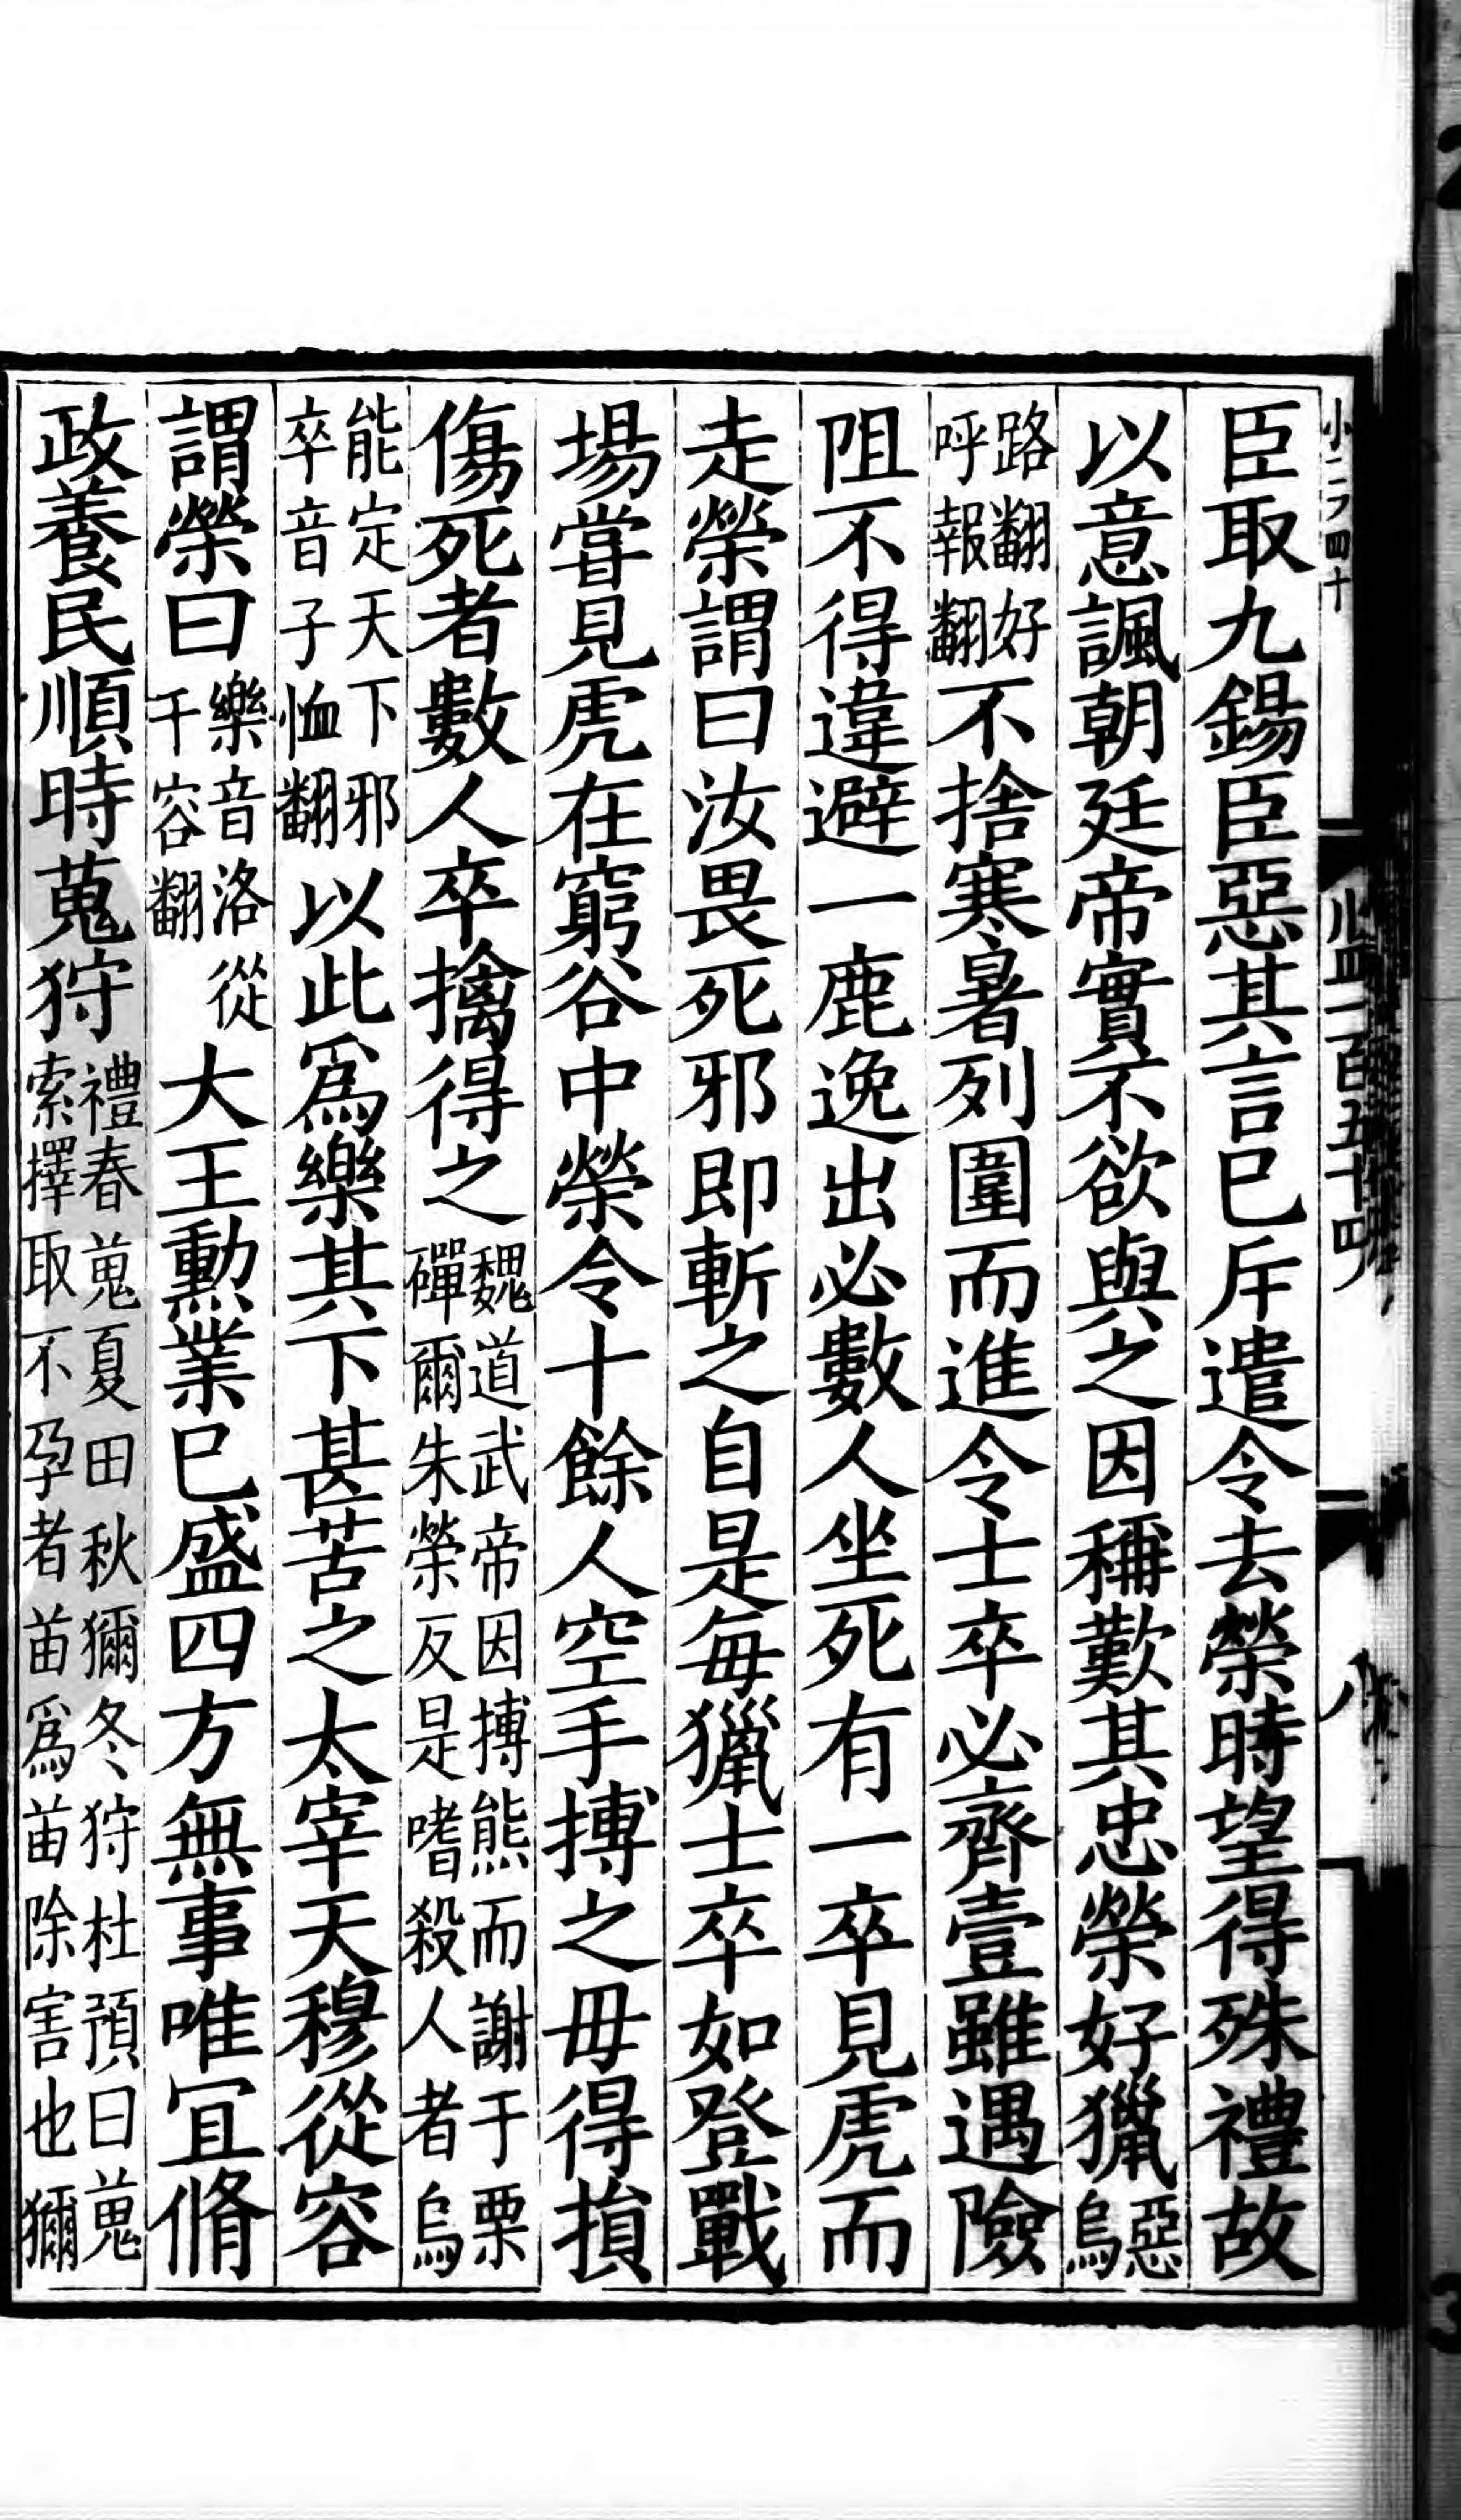 小二フ四十
監一百五十四
臣取九錫臣惡其言已斥遣令去榮時望得殊禮故
以意諷朝廷帝實不欲與之因稱歎其忠榮好獵惡烏
路翻好呼報翻不捨寒暑列圍而進令士卒必齊壹雖遇險
阻不得違避一鹿逸出必數人坐死有一卒見虎而
走榮謂曰汝畏死邪即斬之自是每獵士卒如登戰
場甞見虎在窮谷中榮令十餘人空手搏之毋得損
傷死者數人卒擒得之魏道武帝因搏熊而謝于栗磾爾朱榮反是嗜殺人者烏
能定天下邪卒音子恤翻以此爲樂其下甚苦之太宰天穆從容
謂榮曰樂音洛從千容翻大王勳業已盛四方無事唯宜脩
政養民順時蒐狩禮春蒐夏田秋獮冬狩杜預曰蒐索擇取不孕者苗爲苗除害也獮